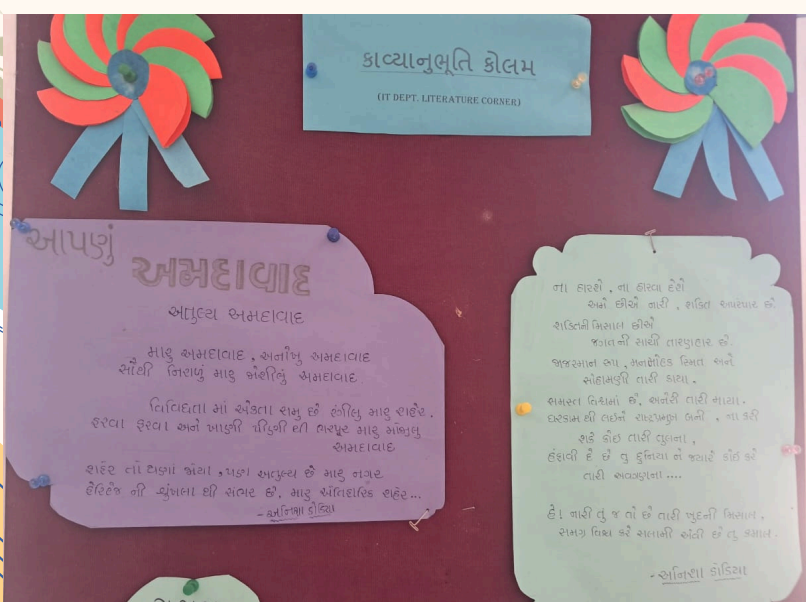 કાવ્યાનુભૂતિ કોલમ
(IT DEPT. LITERATURE CORNER)
આપણું
અમદાવાદ
અતુલ્ય અમદાવાદ
મારુ અમદાવાદ, અનોખુ અમદાવાદ
સૌથી નિરાળુ મારુ અમદાવાદ
વિવિધતા માં એકતા સમુ છે રંગીલુ મારુ શહેર.
ફરવા ફરવા અને ખાણી પીણી થી ભરપૂર મારુ
અમદાવાદ
શહેર તો ઘણા જોયા, પણ અતુલ્ય છે મારુ નગર
હેરિટેજ ની શૃંખલા થી સભર છે, મારુ ઐતિહાસિક શહેર...
- અનિષા કોડિયા
ના હારશે, ના હારવા દેશે
અમે છીએ નારી, શક્તિ અપરંપાર છે.
શક્તિની મિસાલ છીએ
જગત ની સાચી તારણહાર છે.
જાજરમાન રૂપ, મનમોહક સ્મિત અને
સોહામણી તારી કાયા.
સમસ્ત વિશ્વમાં છે, અનેરી તારી માયા.
ઘરકામ થી લઇને રાષ્ટ્રપ્રમુખ બની, ના કરી
શકે કોઇ તારી તુલના,
હંફાવી દે છે તુ દુનિયા ને જ્યારે કોઈ કરે
તારી અવગણના....
હે! નારી તુ જ તો છે તારી ખુદની મિસાલ,
સમગ્ર વિશ્વ કરે સલામી એવી છે તુ કમાલ.
- અનિષા કોડિયા